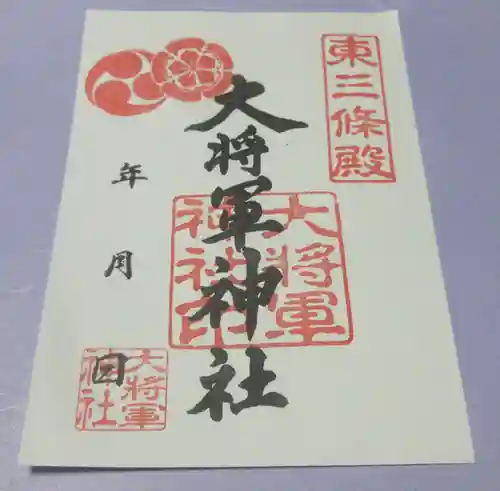 東三條殿
大将軍神社
大将軍
神社印
年 月 日
大将軍
神社